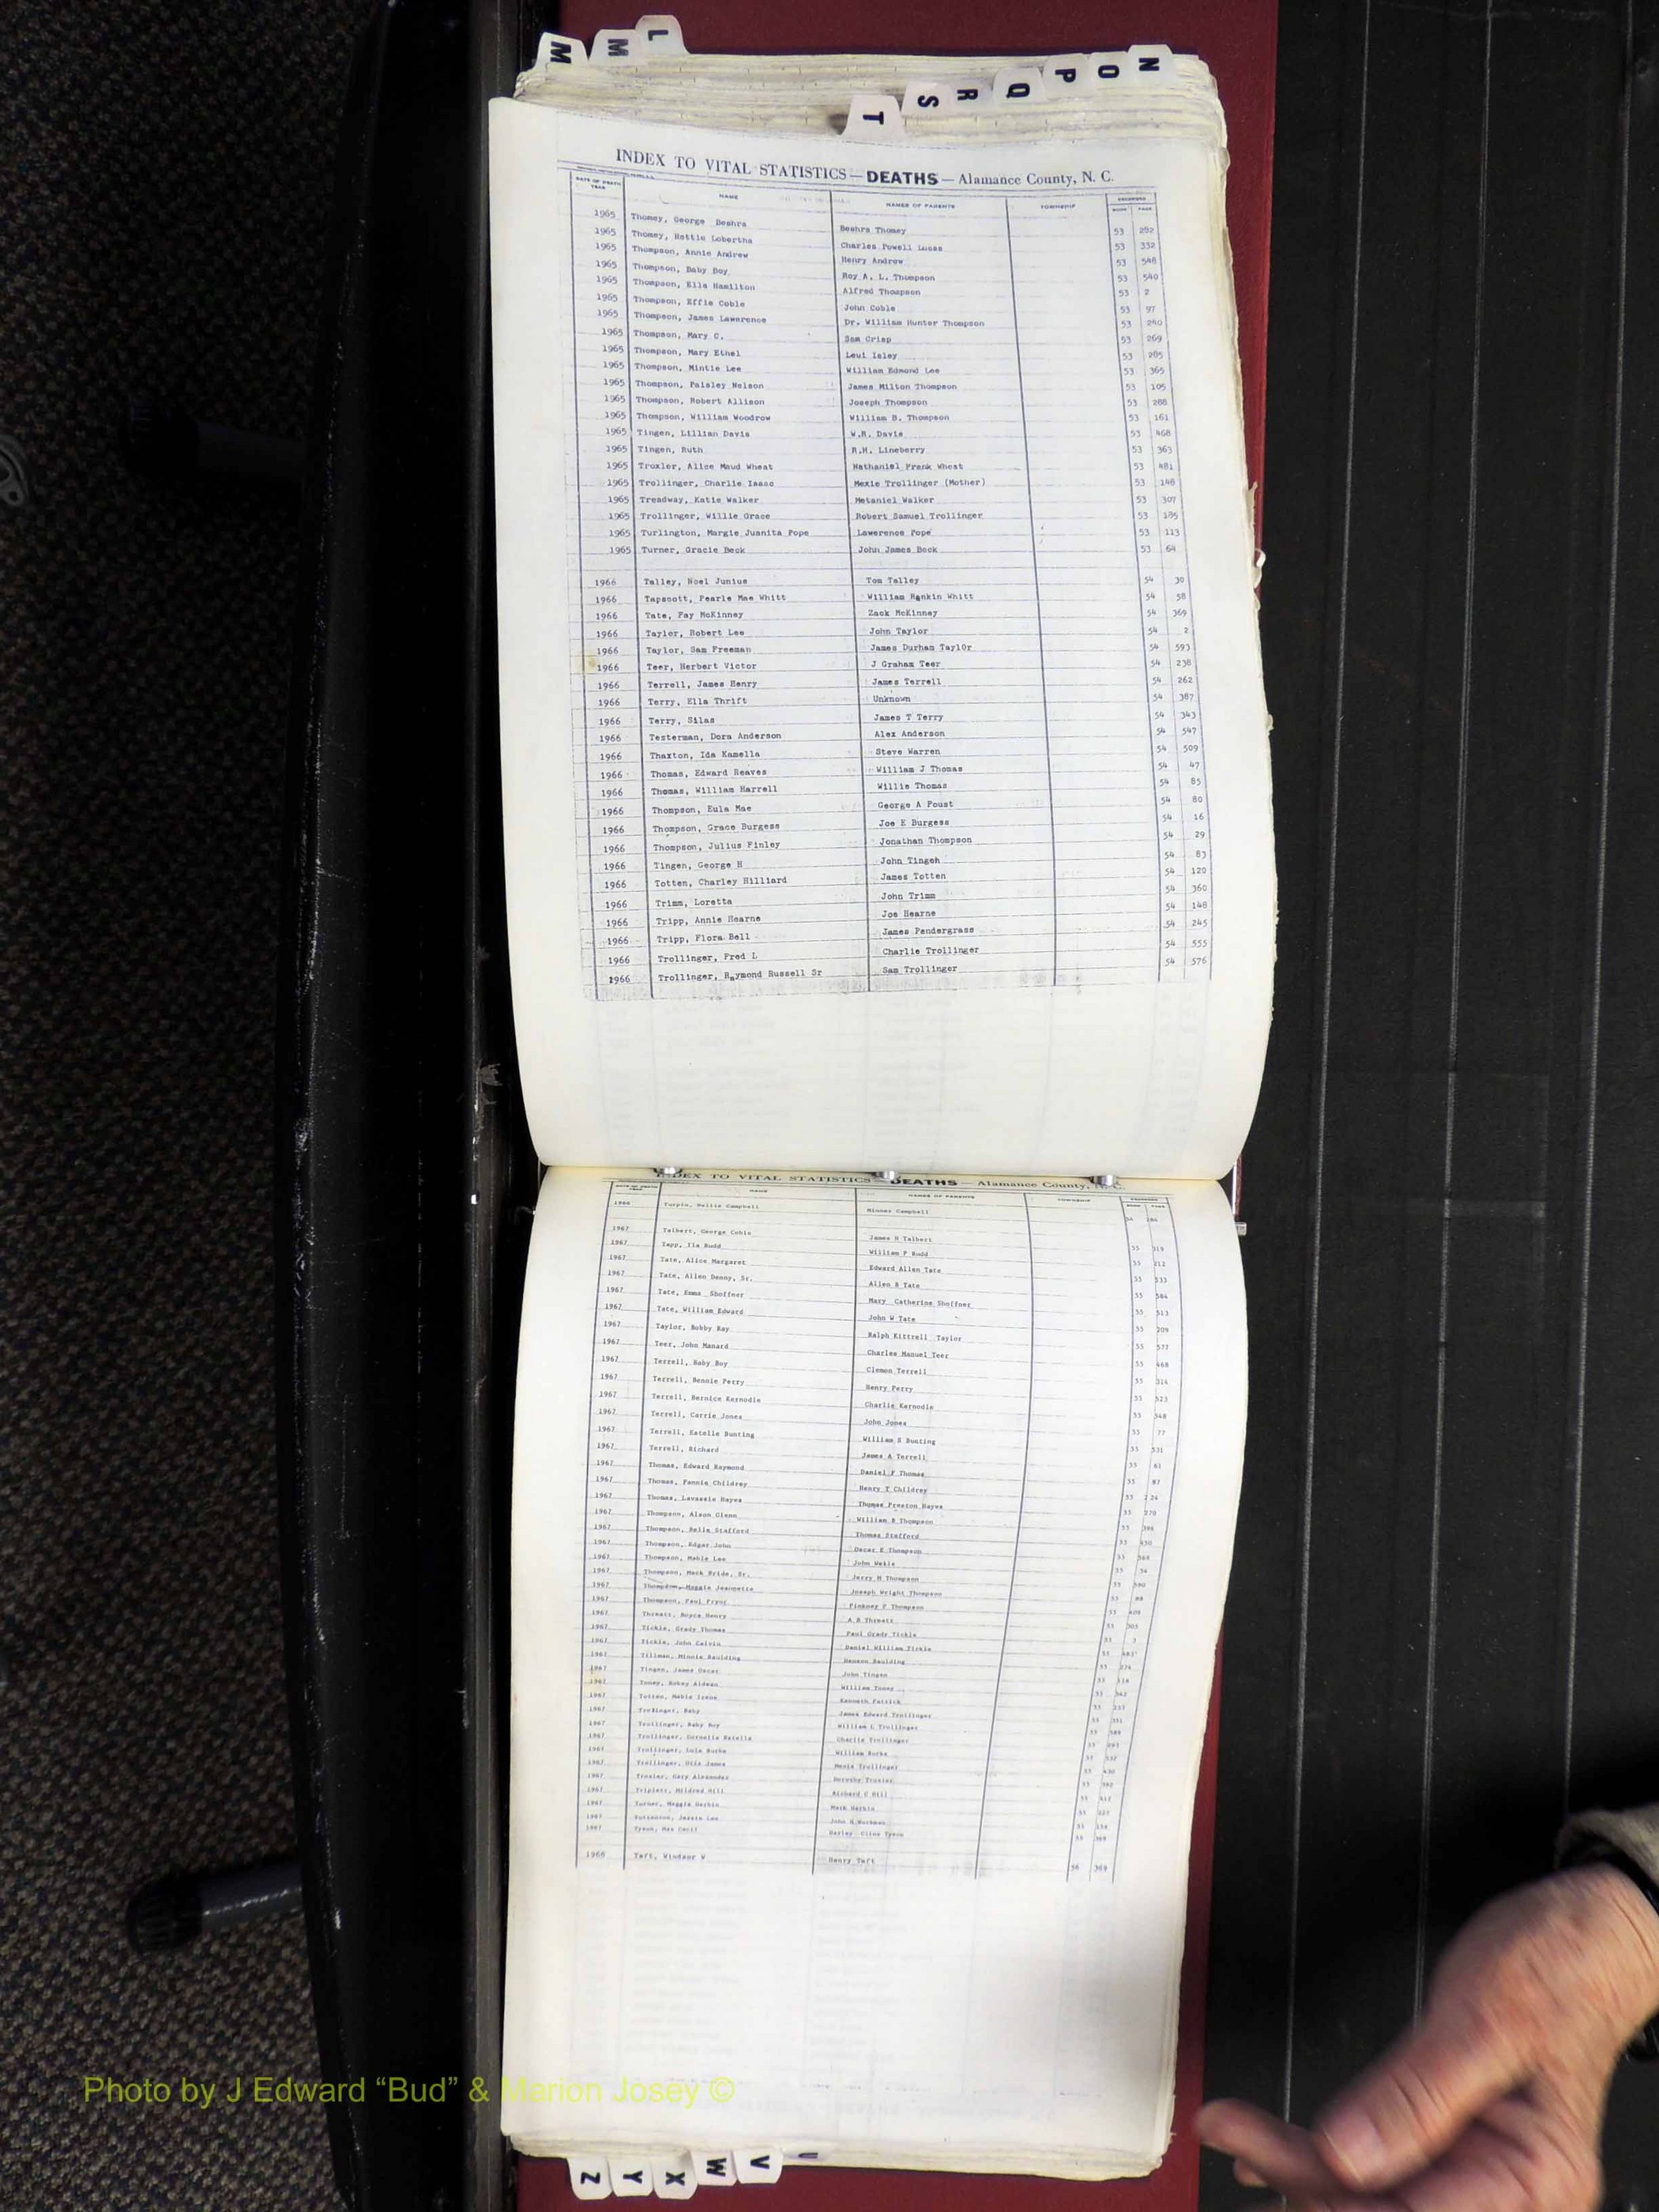 M M L
N O P Q R S T
INDEX TO VITAL STATISTICS — DEATHS — Alamance County, N. C.
DATE OF DEATH YEAR NAME NAMES OF PARENTS TOWNSHIP RECORDED BOOK PAGE
1965 Thomey, George Beshra Beshra Thomey 53 282
1965 Thomey, Hettie Lobertha Charles Powell Lucas 53 332
1965 Thompson, Annie Andrew Henry Andrew 53 548
1965 Thompson, Baby Boy Roy A. L. Thompson 53 540
1965 Thompson, Ella Hamilton Alfred Thompson 53 2
1965 Thompson, Effie Coble John Coble 53 97
1965 Thompson, James Lawerence Dr. William Hunter Thompson 53 240
1965 Thompson, Mary C. Sam Crisp 53 269
1965 Thompson, Mary Ethel Leui Isley 53 285
1965 Thompson, Mintie Lee William Edmond Lee 53 365
1965 Thompson, Paisley Nelson James Milton Thompson 53 105
1965 Thompson, Robert Allison Joseph Thompson 53 288
1965 Thompson, William Woodrow William B. Thompson 53 161
1965 Tingen, Lillian Davis W.R. Davis 53 468
1965 Tingen, Ruth R.H. Lineberry 53 363
1965 Troxler, Alice Maud Wheat Nathaniel Frank Wheat 53 481
1965 Trollinger, Charlie Isaac Mexie Trollinger (Mother) 53 148
1965 Treadway, Katie Walker Metaniel Walker 53 307
1965 Trollinger, Willie Grace Robert Samuel Trollinger 53 185
1965 Turlington, Margie Juanita Pope Lawerence Pope 53 113
1965 Turner, Gracie Beck John James Beck 53 64
1966 Talley, Noel Junius Tom Talley 54 30
1966 Tapscott, Pearle Mae Whitt William Rankin Whitt 54 58
1966 Tate, Fay McKinney Zack McKinney 54 369
1966 Taylor, Robert Lee John Taylor 54 2
1966 Taylor, Sam Freeman James Durham Taylor 54 593
1966 Teer, Herbert Victor J Graham Teer 54 238
1966 Terrell, James Henry James Terrell 54 262
1966 Terry, Ella Thrift Unknown 54 387
1966 Terry, Silas James T Terry 54 343
1966 Testerman, Dora Anderson Alex Anderson 54 547
1966 Thaxton, Ida Kamella Steve Warren 54 509
1966 Thomas, Edward Reaves William J Thomas 54 47
1966 Thomas, William Harrell Willie Thomas 54 85
1966 Thompson, Eula Mae George A Foust 54 80
1966 Thompson, Grace Burgess Joe E Burgess 54 16
1966 Thompson, Julius Finley Jonathan Thompson 54 29
1966 Tingen, George H John Tingen 54 83
1966 Totten, Charley Hilliard James Totten 54 120
1966 Trimm, Loretta John Trimm 54 360
1966 Tripp, Annie Hearne Joe Hearne 54 148
1966 Tripp, Flora Bell James Pendergrass 54 245
1966 Trollinger, Fred L Charlie Trollinger 54 555
1966 Trollinger, Raymond Russell Sr Sam Trollinger 54 576
INDEX TO VITAL STATISTICS DEATHS — Alamance County, N. C.
DATE OF DEATH YEAR NAME NAMES OF PARENTS TOWNSHIP RECORDED BOOK PAGE
1966 Turpin, Campbell Campbell 54
1967 Talbert, George Coble James H Talbert 55 319
1967 Tapp, Ila Rudd William P Rudd 55 212
1967 Tate, Alice Margaret Edward Allen Tate 55 533
1967 Tate, Allen Denny, Sr. Allen B Tate 55 584
1967 Tate, Emma Shoffner Mary Catherine Shoffner 55 513
1967 Tate, William Edward John W Tate 55 209
1967 Taylor, Bobby Ray Ralph Kittrell Taylor 55 577
1967 Teer, John Manard Charles Manuel Teer 55 468
1967 Terrell, Baby Boy Clemon Terrell 55 314
1967 Terrell, Bennie Perry Henry Perry 55 523
1967 Terrell, Bernice Kernodle Charlie Kernodle 55 548
1967 Terrell, Carrie Jones John Jones 55 77
1967 Terrell, Estelle Bunting William S Bunting 55 531
1967 Terrell, Richard James A Terrell 55 61
1967 Thomas, Edward Raymond Daniel F Thomas 55 87
1967 Thomas, Fannie Childrey Henry T Childrey 55 224
1967 Thomas, Lavassie Hayes Thomas Preston Hayes 55 270
1967 Thompson, Alson Glenn William B Thompson 55
1967 Thompson, Belle Stafford Thomas Stafford 55 450
1967 Thompson, Edgar John Oscar E Thompson 55
1967 Thompson, Mable Lee John 55
1967 Thompson, Mack Bride, Sr. Jerry M Thompson 55
1967 Thompson, Maggie Jeannette Joseph Wright Thompson 55
1967 Thompson, Paul Pryor Pinkney F Thompson 55
1967 Threatt, Boyce Henry A B Threatt 55
1967 Tickle, Grady Thomas Paul Grady Tickle 55
1967 Tickle, John Calvin Daniel William Tickle 55
1967 Tillman, Minnie Baulding Henson Baulding 55
1967 Tingen, James Oscar John Tingen 55
1967 Toney, Aldean William Toney 55
1967 Totten, Mable Irene Kenneth Patrick 55
1967 Trollinger, Baby James Edward Trollinger 55
1967 Trollinger, Baby Boy William L Trollinger 55
1967 Trollinger, Cornelia Estella Charlie Trollinger 55
1967 Trollinger, Lula Burke William Burke 55
1967 Trollinger, Otis James Trollinger 55
1967 Troxler, Gary Alexander Dorothy Troxler 55
1967 Triplett, Mildred Hill Richard C Hill 55
1967 Turner, Maggie Harbin Mark Harbin 55
1967 Jessie Lee John H 55
1967 Tyson, Cecil Harley Cline Tyson 55
1968 Taft, Windsor W Henry Taft 56 369
Photo by J Edward “Bud” & Marion Josey ©
Z Y X W V U